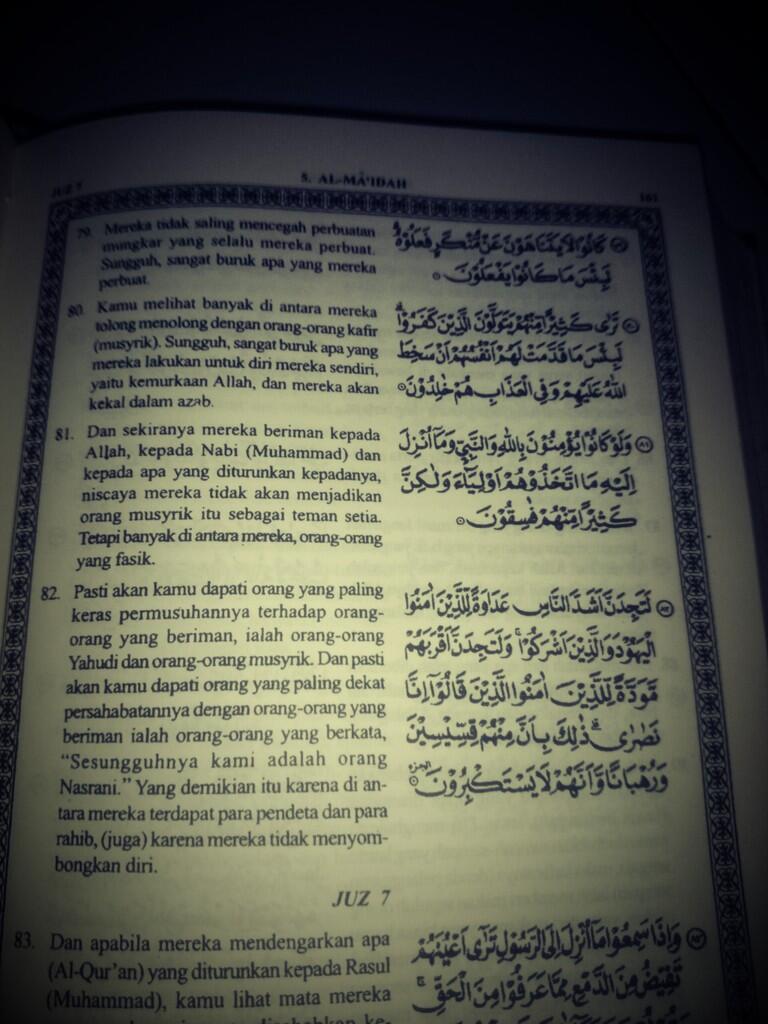 JUZ 7
5. AL-MÂ'IDAH
161
79. Mereka tidak saling mencegah perbuatan
mungkar yang selalu mereka perbuat.
Sungguh, sangat buruk apa yang mereka
perbuat.
كَانُوا لَا يَتَنَاهَوْنَ عَنْ مُنْكَرٍ فَعَلُوْهُ
لَبِئْسَ مَا كَانُوْا يَفْعَلُوْنَ
80. Kamu melihat banyak di antara mereka
tolong menolong dengan orang-orang kafir
(musyrik). Sungguh, sangat buruk apa yang
mereka lakukan untuk diri mereka sendiri,
yaitu kemurkaan Allah, dan mereka akan
kekal dalam azab.
تَرٰى كَثِيْرًا مِنْهُمْ يَتَوَلَّوْنَ الَّذِيْنَ كَفَرُوْا
لَبِئْسَ مَا قَدَّمَتْ لَهُمْ اَنْفُسُهُمْ اَنْ سَخِطَ
اللّٰهُ عَلَيْهِمْ وَفِى الْعَذَابِ هُمْ خٰلِدُوْنَ
81. Dan sekiranya mereka beriman kepada
Allah, kepada Nabi (Muhammad) dan
kepada apa yang diturunkan kepadanya,
niscaya mereka tidak akan menjadikan
orang musyrik itu sebagai teman setia.
Tetapi banyak di antara mereka, orang-orang
yang fasik.
وَلَوْ كَانُوْا يُؤْمِنُوْنَ بِاللّٰهِ وَالنَّبِيِّ وَمَآ اُنْزِلَ
اِلَيْهِ مَا اتَّخَذُوْهُمْ اَوْلِيَآءَ وَلٰكِنَّ
كَثِيْرًا مِنْهُمْ فٰسِقُوْنَ
82. Pasti akan kamu dapati orang yang paling
keras permusuhannya terhadap orang-
orang yang beriman, ialah orang-orang
Yahudi dan orang-orang musyrik. Dan pasti
akan kamu dapati orang yang paling dekat
persahabatannya dengan orang-orang yang
beriman ialah orang-orang yang berkata,
“Sesungguhnya kami adalah orang
Nasrani.” Yang demikian itu karena di an-
tara mereka terdapat para pendeta dan para
rahib, (juga) karena mereka tidak menyom-
bongkan diri.
لَتَجِدَنَّ اَشَدَّ النَّاسِ عَدَاوَةً لِلَّذِيْنَ اٰمَنُوا
الْيَهُوْدَ وَالَّذِيْنَ اَشْرَكُوْا وَلَتَجِدَنَّ اَقْرَبَهُمْ
مَوَدَّةً لِلَّذِيْنَ اٰمَنُوا الَّذِيْنَ قَالُوْٓا اِنَّا
نَصٰرٰى ذٰلِكَ بِاَنَّ مِنْهُمْ قِسِّيْسِيْنَ
وَرُهْبَانًا وَّاَنَّهُمْ لَا يَسْتَكْبِرُوْنَ
JUZ 7
83. Dan apabila mereka mendengarkan apa
(Al-Qur'an) yang diturunkan kepada Rasul
(Muhammad), kamu lihat mata mereka
وَاِذَا سَمِعُوْا مَآ اُنْزِلَ اِلَى الرَّسُوْلِ تَرٰٓى اَعْيُنَهُمْ
تَفِيْضُ مِنَ الدَّمْعِ مِمَّا عَرَفُوْا مِنَ الْحَقِّ